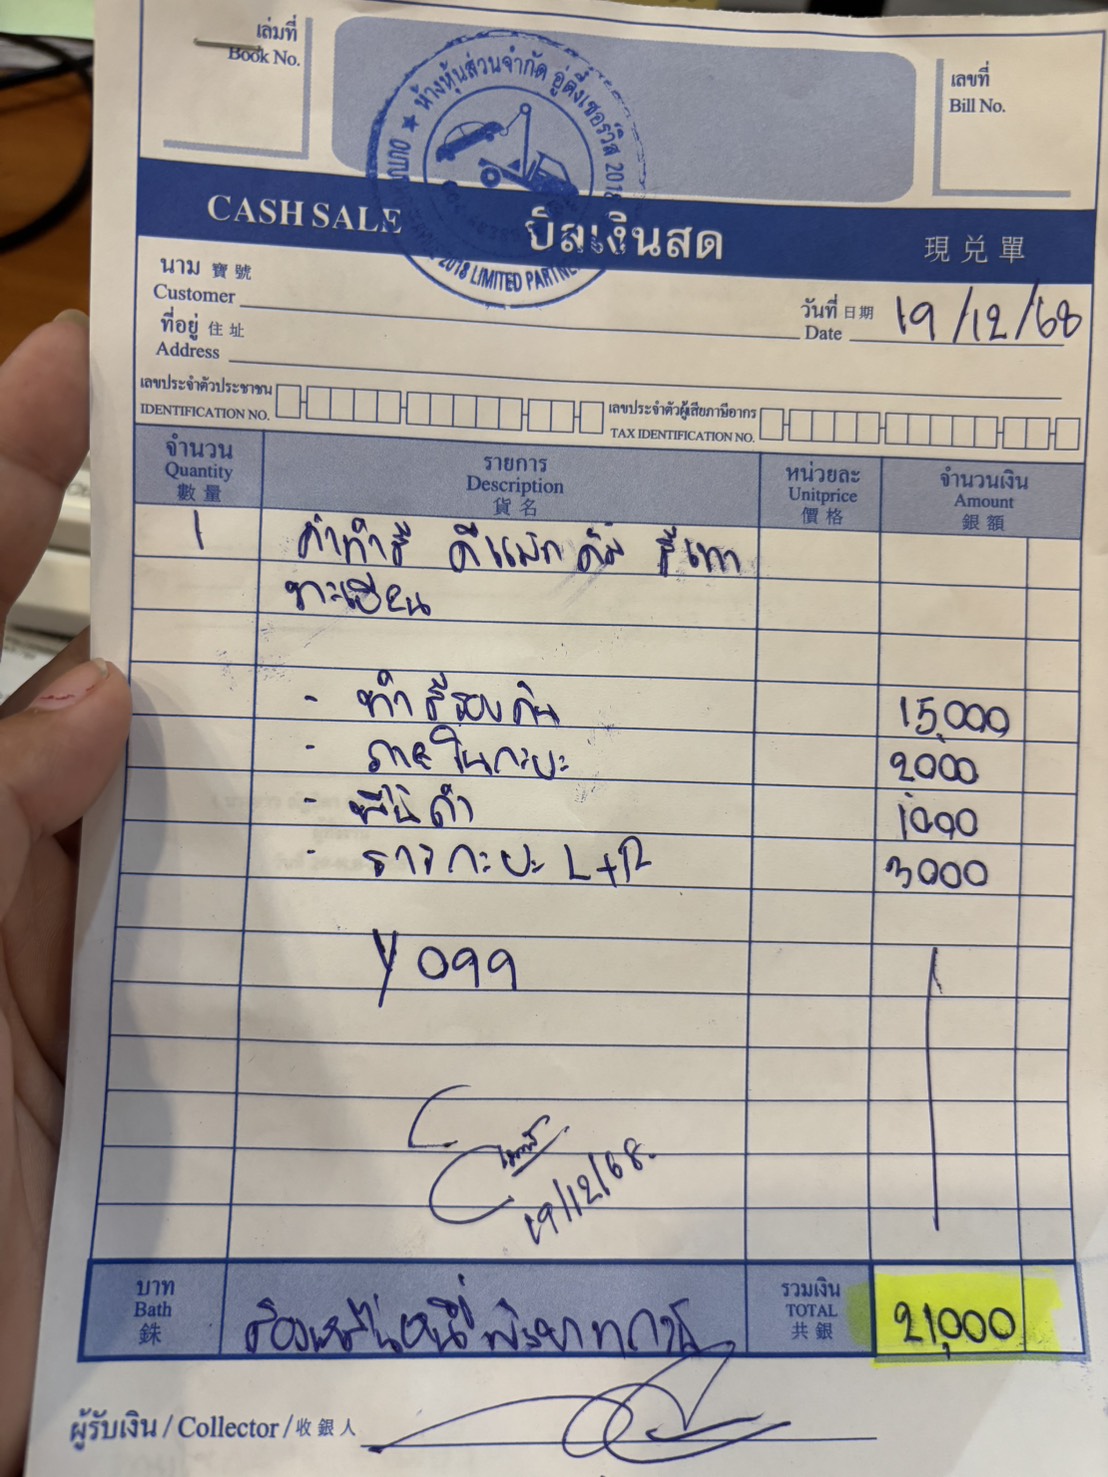 เล่มที่
Book No.
เลขที่
Bill No.
ห้างหุ้นส่วนจำกัด อู่ตึ๋งเซอร์วิส 2018
2018 LIMITED PARTNE
CASH SALE บิลเงินสด 現兌單
นาม 寶號
Customer
วันที่ 日期
Date 19/12/68
ที่อยู่ 住址
Address
เลขประจำตัวประชาชน
IDENTIFICATION NO.
เลขประจำตัวผู้เสียภาษีอากร
TAX IDENTIFICATION NO.
จำนวน รายการ หน่วยละ จำนวนเงิน
Quantity Description Unitprice Amount
數量 貨名 價格 銀額
1 ค่าทำสี ดีแม็ก สีเทา
ทะเบียน
- ทำสีรองคัน 15,000
- ภายในกะบะ 2000
- สีดำ 1000
- ราวกะบะ L+R 3000
Y 099
19/12/68.
บาท
Bath
銖
สองหมื่นหนึ่งพันบาทถ้วน
รวมเงิน
TOTAL
共銀
21,000
ผู้รับเงิน / Collector / 收銀人